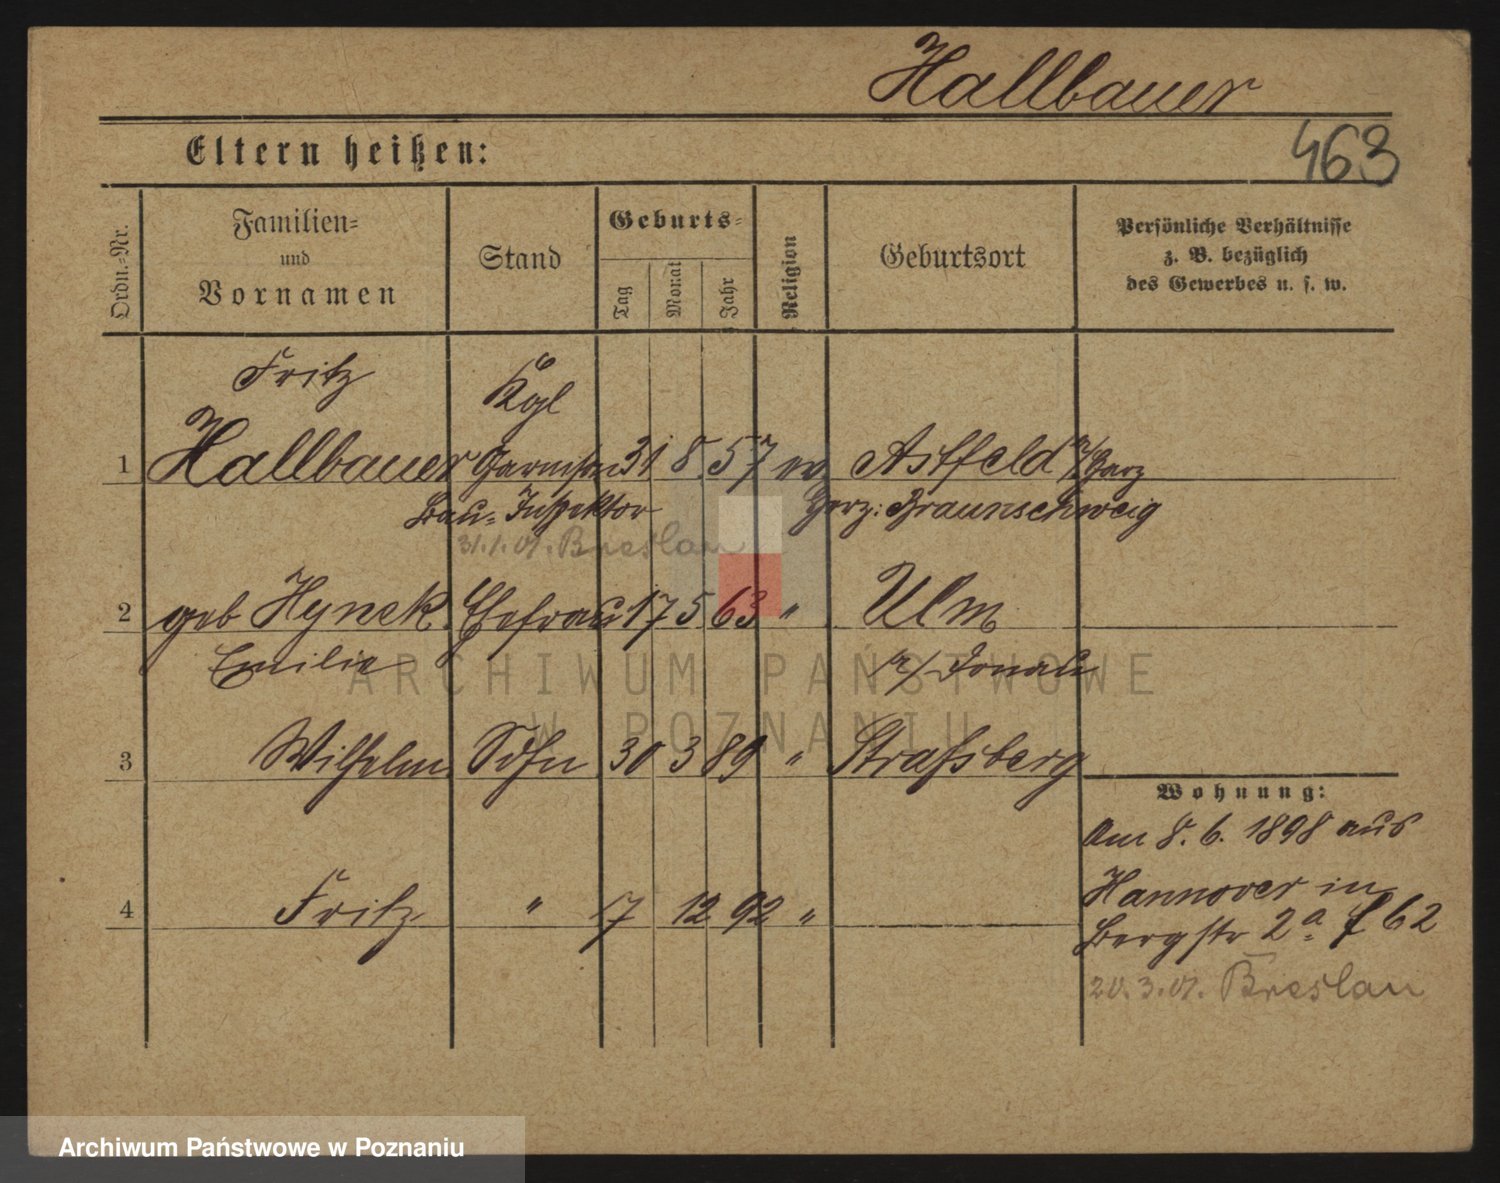 Hallbauer
463
Eltern heißen:
Ordn.-Nr.
Familien-
und
Vornamen
Stand
Geburts-
Tag
Monat
Jahr
Religion
Geburtsort
Persönliche Verhältnisse
z. B. bezüglich
des Gewerbes u. s. w.
Fritz Kgl
1 Hallbauer Garnison 31 8 57 ev Astfeld a/Harz
Bau-Inspektor Herz: Braunschweig
31.1.01. Breslau
2 geb Hynek Ehefrau 17 5 63 " Ulm
Emilie a/Donau
3 Wilhelm Sohn 30 3 89 " Straßberg
Wohnung:
Am 8. 6. 1898 aus
4 Fritz " 7 12 92 " Hannover in
Bergstr 2a f 62
20.3.01. Breslau
ARCHIWUM PAŃSTWOWE
W POZNANIU
Archiwum Państwowe w Poznaniu